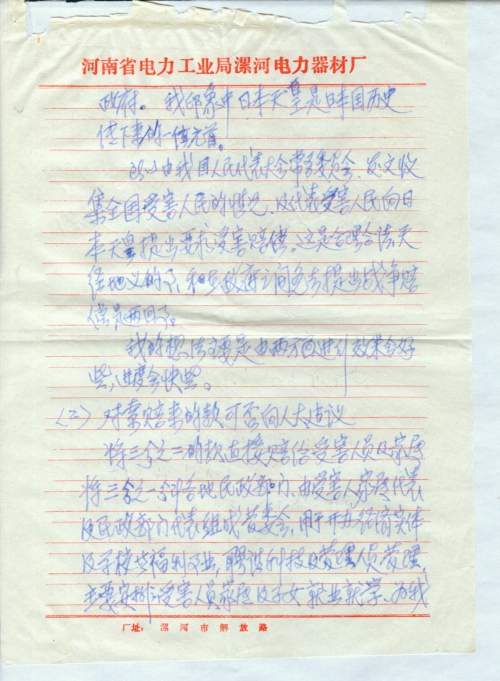 河南省电力工业局漯河电力器材厂
政府。我印象中日本天皇是日本国历史
传下来的一位元首。
所以由我国人民代表大会常务委员会,发文收
集全国受害人民的情况,及代表受害人民向日
本天皇提出要求受害赔偿,这是合理合法天
经地义的了,和与政府之间免去提出战争赔
偿是两回事。
我的想法主要是由两方面进行效果会好
些,进度会快些。
(二)对索赔来的款可否向人大建议
将三分之二的款直接赔给受害人员及家属
将三分之一分到各地民政部门,由受害人家属代表
及民政部门代表组成管委会,用于开办经济实体
及学校等福利事业,聘请科技及管理人员管理,
主要安排受害人员家属及子女就业就学,为我
厂址:漯河市解放路